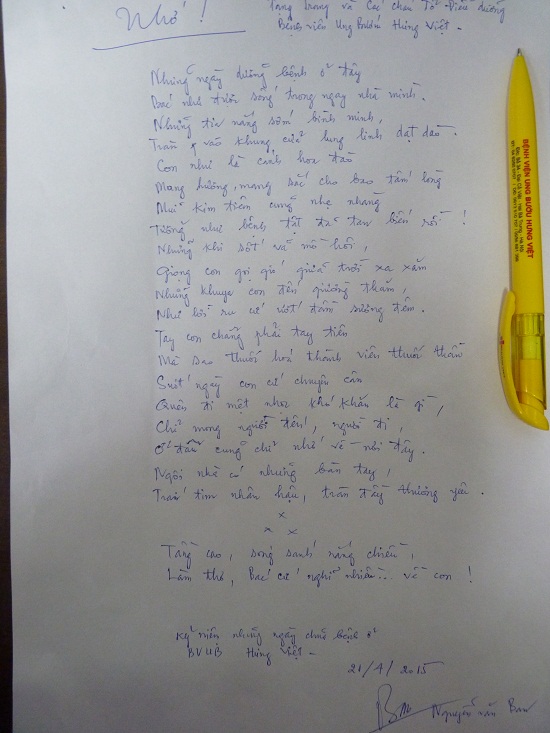 Nhớ !
Tặng Trang và Các cháu Tổ Điều dưỡng
Bệnh viện Ung Bướu Hưng Việt -
Những ngày dưỡng bệnh ở đây
Bác như được sống trong ngay nhà mình.
Những tia nắng sớm bình minh,
Tràn qua khung cửa lung linh dạt dào.
Con như là cánh hoa đào
Mang hương, mang sắc cho bao tấm lòng
Mũi kim tiêm cũng nhẹ nhàng
Tưởng như bệnh tật đã tan biến rồi !
Những khi sốt vã mồ hôi,
Giọng con gọi giữa trời xa xăm
Những khuya con đến giường thăm,
Như lời ru cứ ướt đầm sương đêm.
Tay con chẳng phải tay tiên
Mà sao thuốc hoá thành viên thuốc thần
Suốt ngày con cứ chuyên cần
Quên đi mệt nhọc khó khăn là gì,
Chỉ mong người đến, người đi,
Ở đâu cũng chỉ nhớ về nơi đây.
Ngôi nhà có những bàn tay,
Trái tim nhân hậu, tràn đầy thương yêu.
x
x x
Tầng cao, song sanh nắng chiều,
Làm thơ, Bác cứ nghĩ nhiều... về con !
Kỷ niệm những ngày chữa bệnh ở
BVUB Hưng Việt -
21/4/2015
Nguyễn văn Ban
BỆNH VIỆN UNG BƯỚU HƯNG VIỆT